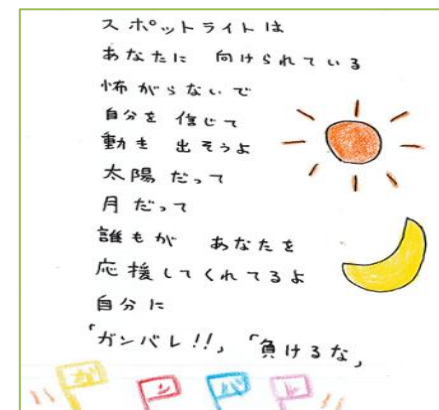 スポットライトは
あなたに 向けられている
怖がらないで
自分を 信じて
動き 出そうよ
太陽だって
月だって
誰もが あなたを
応援してくれてるよ
自分に
「ガンバレ!!」「負けるな」
ガ ン バ レ